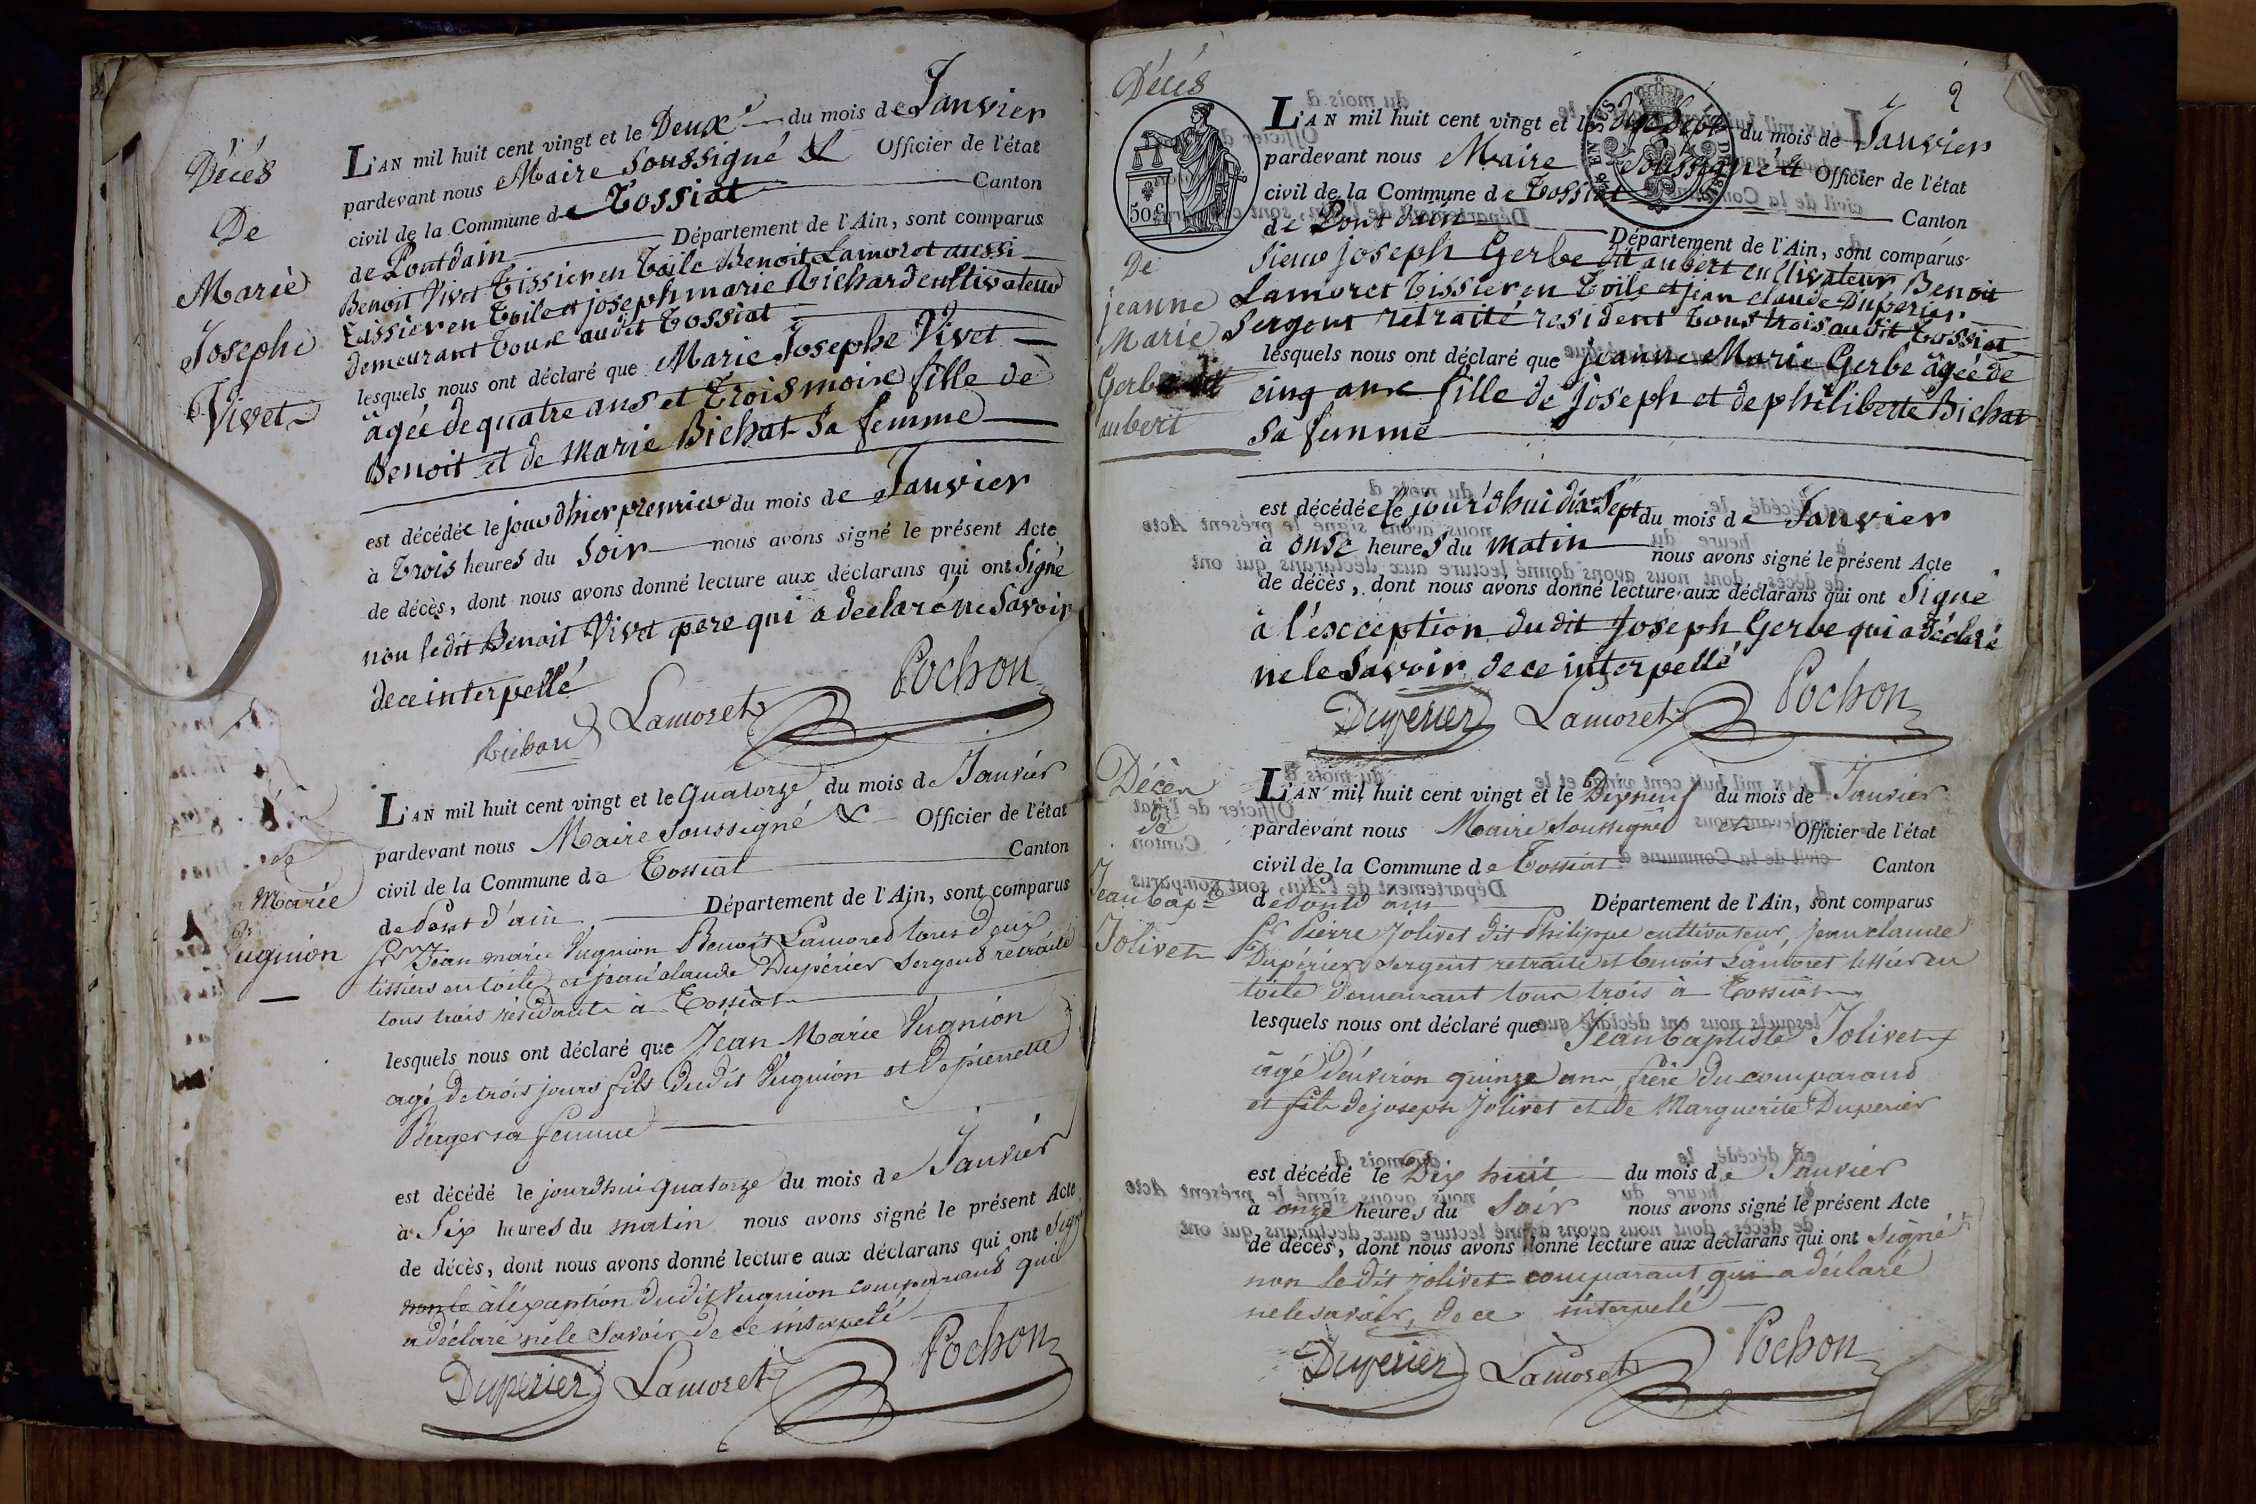 Décés
De
Marie
Josephe
Vivet
L'AN mil huit cent vingt et le Deuxe du mois de Janvier
pardevant nous Maire Soussigné & Officier de l'état
civil de la Commune de Tossiat Canton
de Pontdain Département de l'Ain, sont comparus
Benoit Vivet Tissier en Toile Benoit Lamoret aussi
Tissier en Toile et joseph marie Richard cultivateur
demeurant Tous audit Tossiat
lesquels nous ont déclaré que Marie Josephe Vivet
âgée de quatre ans et Trois mois fille de
Benoit et de Marie Bichat Sa femme
est décédée le jour d'hier premier du mois de Janvier
à Trois heures du Soir nous avons signé le présent Acte
de décès, dont nous avons donné lecture aux déclarans qui ont Signé
non ledit Benoit Vivet pere qui a declaré ne Savoir
de ce interpellé
Richard Lamoret Pochon
de
Marie
Vugnion
L'AN mil huit cent vingt et le Quatorze du mois de Janvier
pardevant nous Maire Soussigné & Officier de l'état
civil de la Commune de Tossiat Canton
de Pont d'ain Département de l'Ain, sont comparus
Srs Jean marie Vugnion Benoit Lamoret tous deux
tissiers en toile, et jean claude Dupérier Sergent retraité
tous trois résidants à Tossiat
lesquels nous ont déclaré que Jean Marie Vugnion
agé de trois jours fils dudit Vugnion et de pierrette
Berger sa femme
est décédé le jourd'hui quatorze du mois de Janvier
à Six heures du matin nous avons signé le présent Acte
de décès, dont nous avons donné lecture aux déclarans qui ont Signé
non le à léxcention dudit Vugnion comparant qui
a déclaré ne le Savoir de ce interpelé
Duperier Lamoret Pochon
2
Décés
50 c.
De
jeanne
Marie
Gerbe dit
aubert
L'AN mil huit cent vingt et le dix Sept du mois de Janvier
pardevant nous Maire Soussigné & Officier de l'état
civil de la Commune de Tossiat Canton
de Pont dain Département de l'Ain, sont comparus
Sieur Joseph Gerbe dit aubert cultivateur Benoit
Lamoret Tissier en Toile et jean claude Dupérier
Sergent retraité résident Tous trois audit Tossiat
lesquels nous ont déclaré que jeanne Marie Gerbe âgée de
cinq ans fille de Joseph et de philiberte Bichat
Sa femme
est décédée le jourd'hui dix Sept du mois de Janvier
à onse heures du matin nous avons signé le présent Acte
de décès, dont nous avons donné lecture aux déclarans qui ont Signé
à l'éxception dudit Joseph Gerbe qui a déclaré
ne le Savoir de ce interpellé
Duperier Lamoret Pochon
Décès
de
Jean bapte
Jolivet
L'AN mil huit cent vingt et le Dixneuf du mois de Janvier
pardevant nous Maire Soussigné et Officier de l'état
civil de la Commune de Tossiat Canton
de Pont d'ain Département de l'Ain, sont comparus
Sr Pierre Jolivet dit Philippe cultivateur, jean claude
Dupérier Sergent retraité et benoit Lamoret tissier en
toile demeurant tous trois à Tossiat
lesquels nous ont déclaré que Jean baptiste Jolivet
âgé d'environ quinze ans frère du comparant
et fils de joseph Jolivet et de Marguerite Duperier
est décédé le Dix huit du mois de Janvier
à onze heures du Soir nous avons signé le présent Acte
de décès, dont nous avons donné lecture aux déclarans qui ont Signé
non ledit jolivet comparant qui a déclaré
ne le savoir, de ce interpelé
Duperier Lamoret Pochon